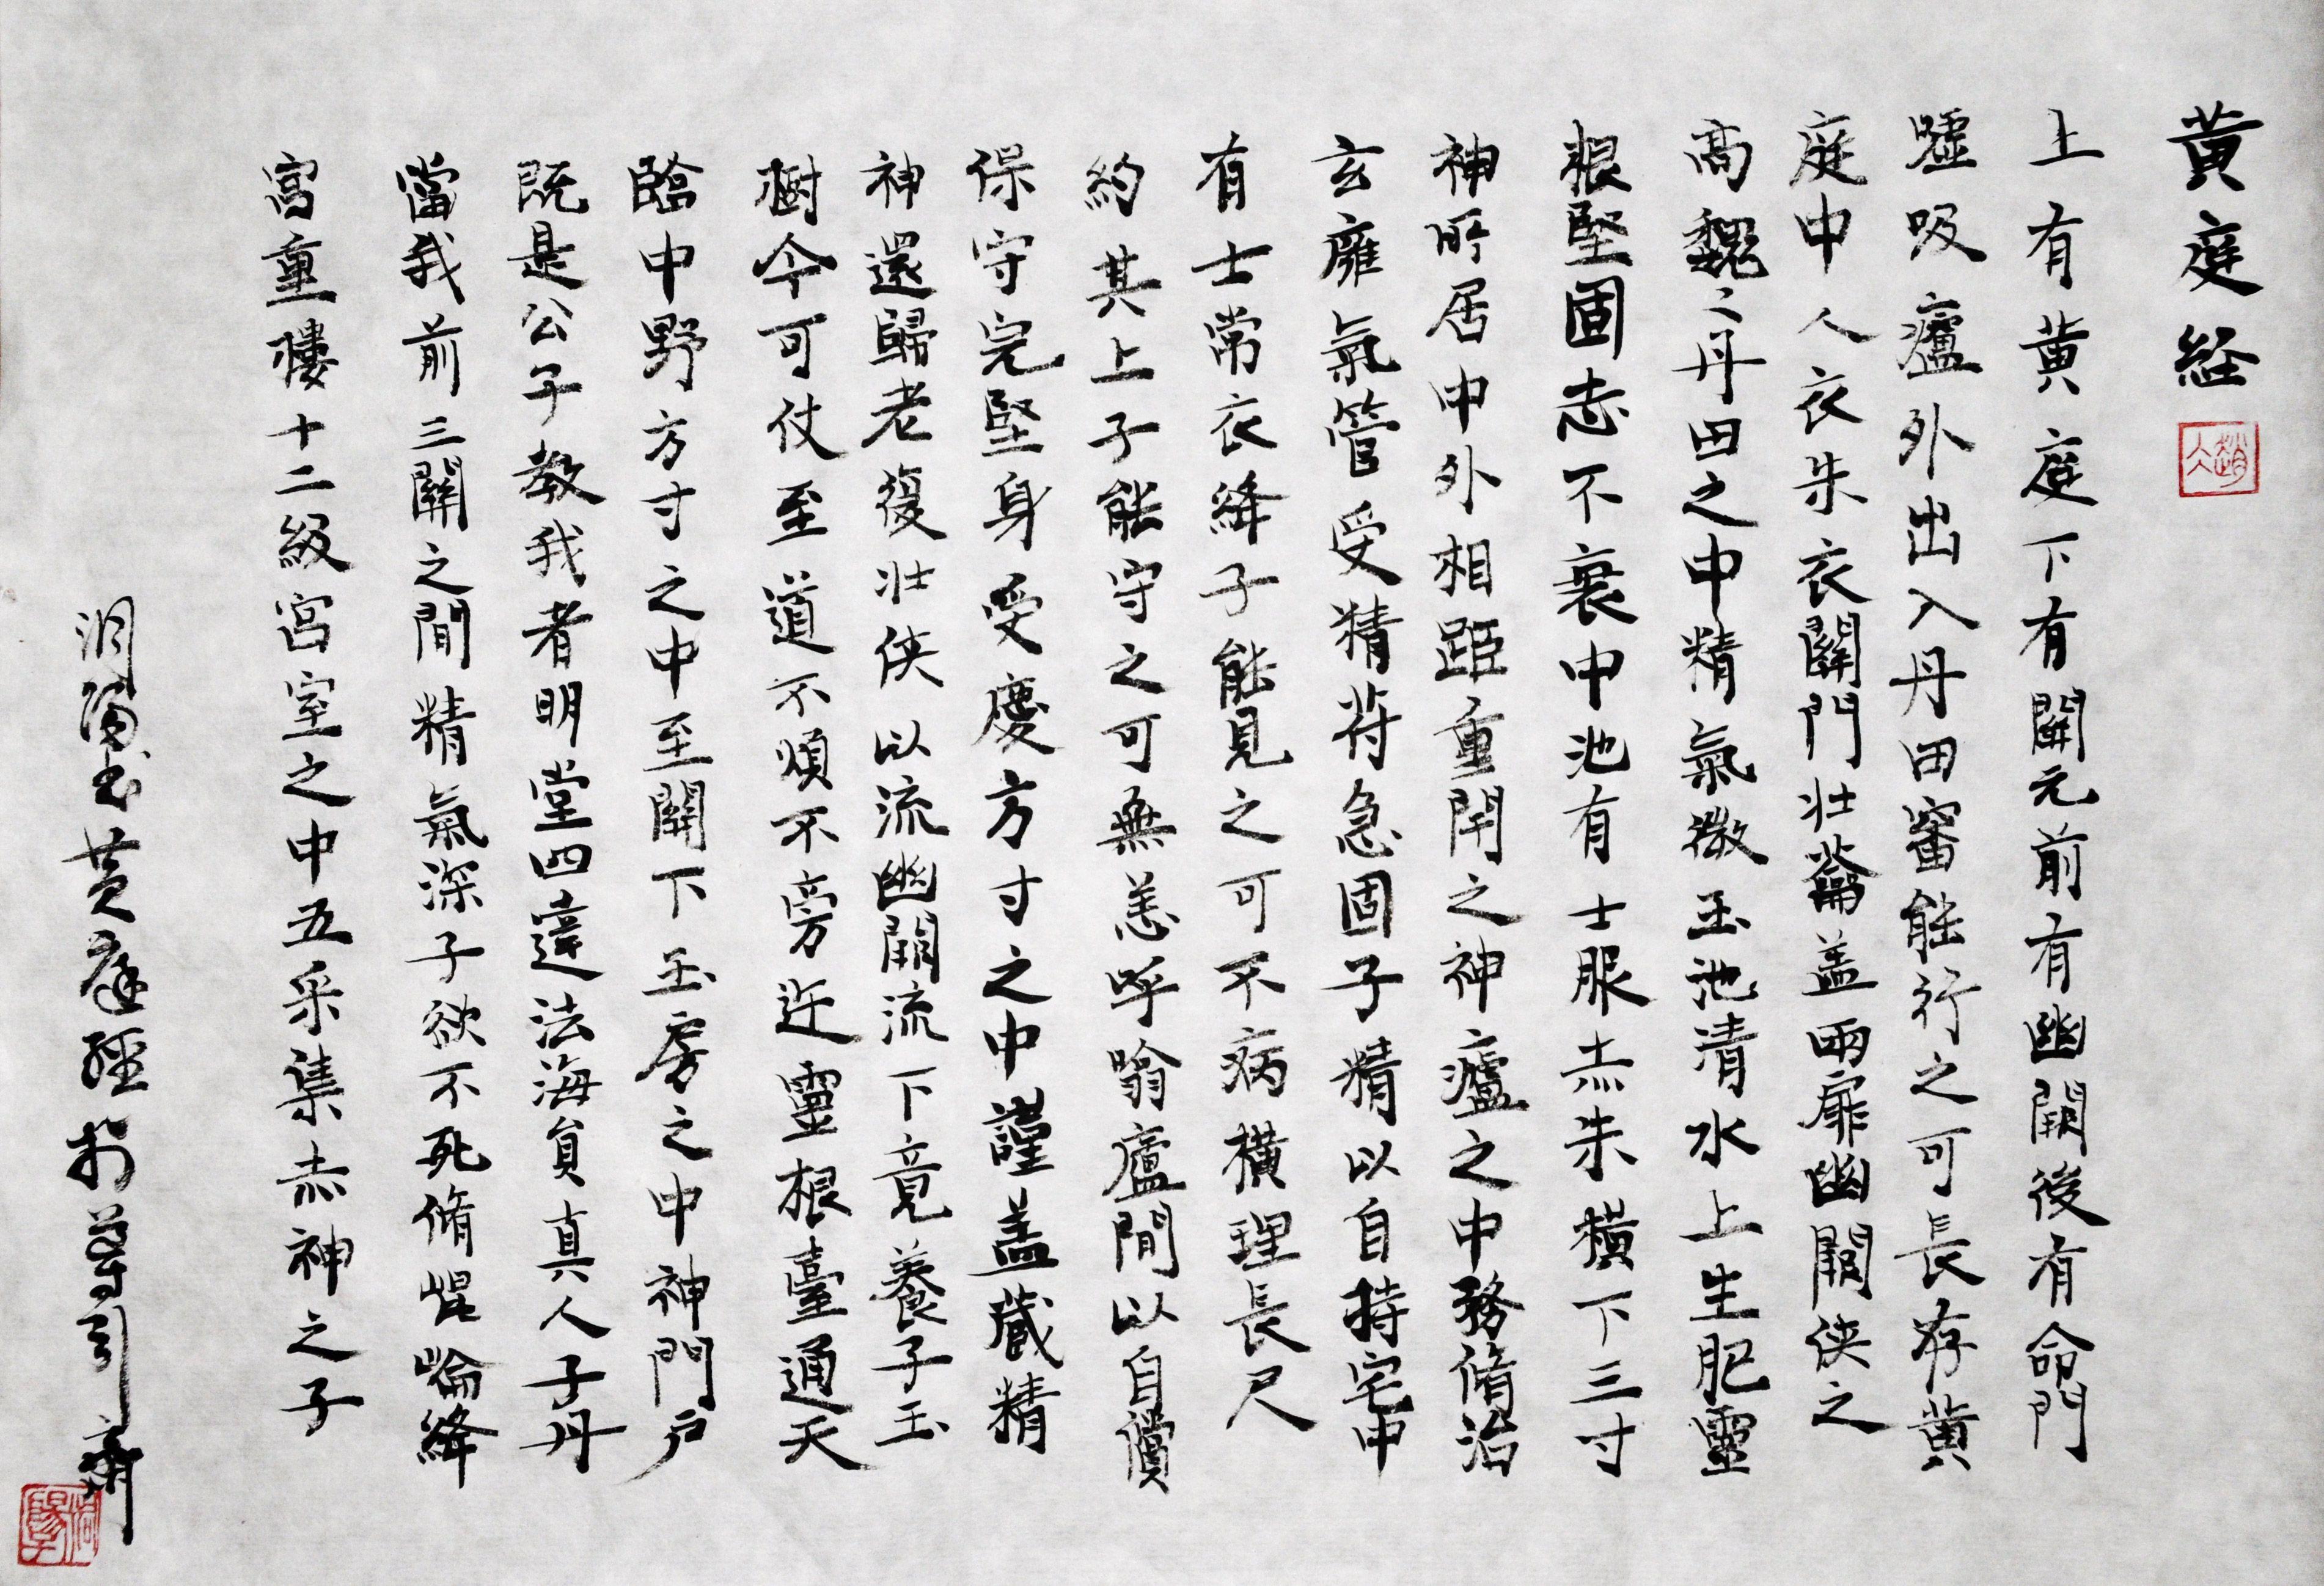 黃庭経
上有黃庭下有關元前有幽闕後有命門
噓吸廬外出入丹田審能行之可長存黃
庭中人衣朱衣關門壯蘥盖兩扉幽闕俠之
高魏〻丹田之中精氣微玉池清水上生肥靈
根堅固志不衰中池有士服赤朱橫下三寸
神所居中外相距重閇之神廬之中務脩治
玄廱氣管受精苻急固子精以自持宅中
有士常衣絳子能見之可不病橫理長尺
約其上子能守之可無恙呼噏廬間以自償
保守完堅身受慶方寸之中謹盖藏精
神還歸老復壯俠以流幽闕流下竟養子玉
樹令可仗至道不煩不旁迕靈根臺通天
臨中野方寸之中至關下玉房之中神門戶
既是公子教我者明堂四達法海負真人子丹
當我前三關之間精氣深子欲不死脩崐崘絳
宮重樓十二級宮室之中五采集赤神之子
洞陽書黃庭經於尊引齋